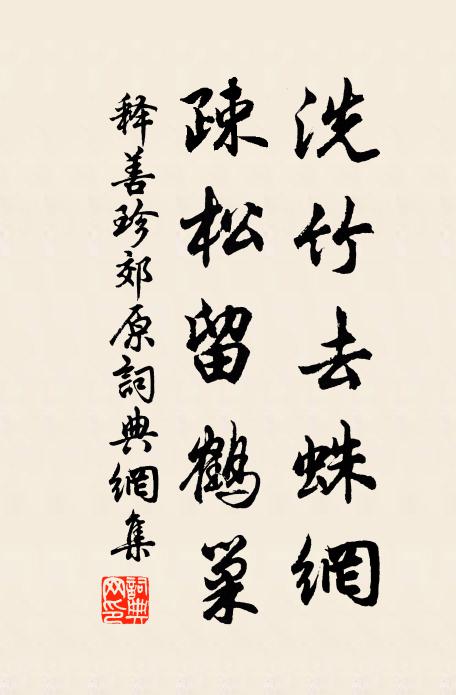 洗竹去蛛網
疎松留鶴巢
释善珍郊原詞典網集
詞典网印